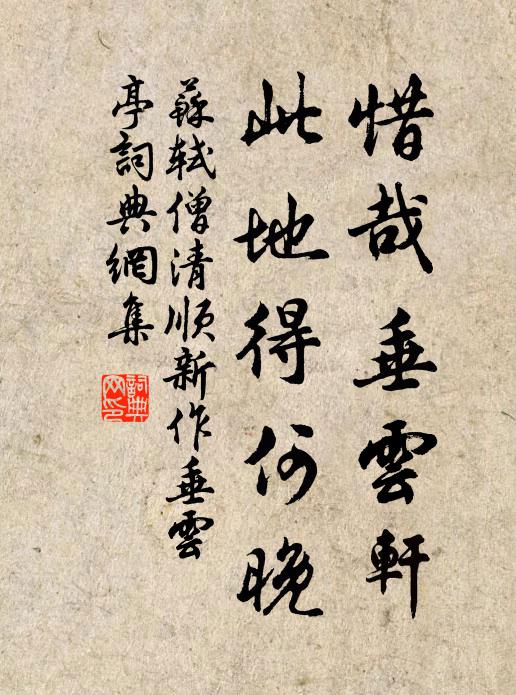 惜哉垂雲軒
此地得何晚
蘇軾僧清順新作垂雲
亭詞典網集
詞典
网印